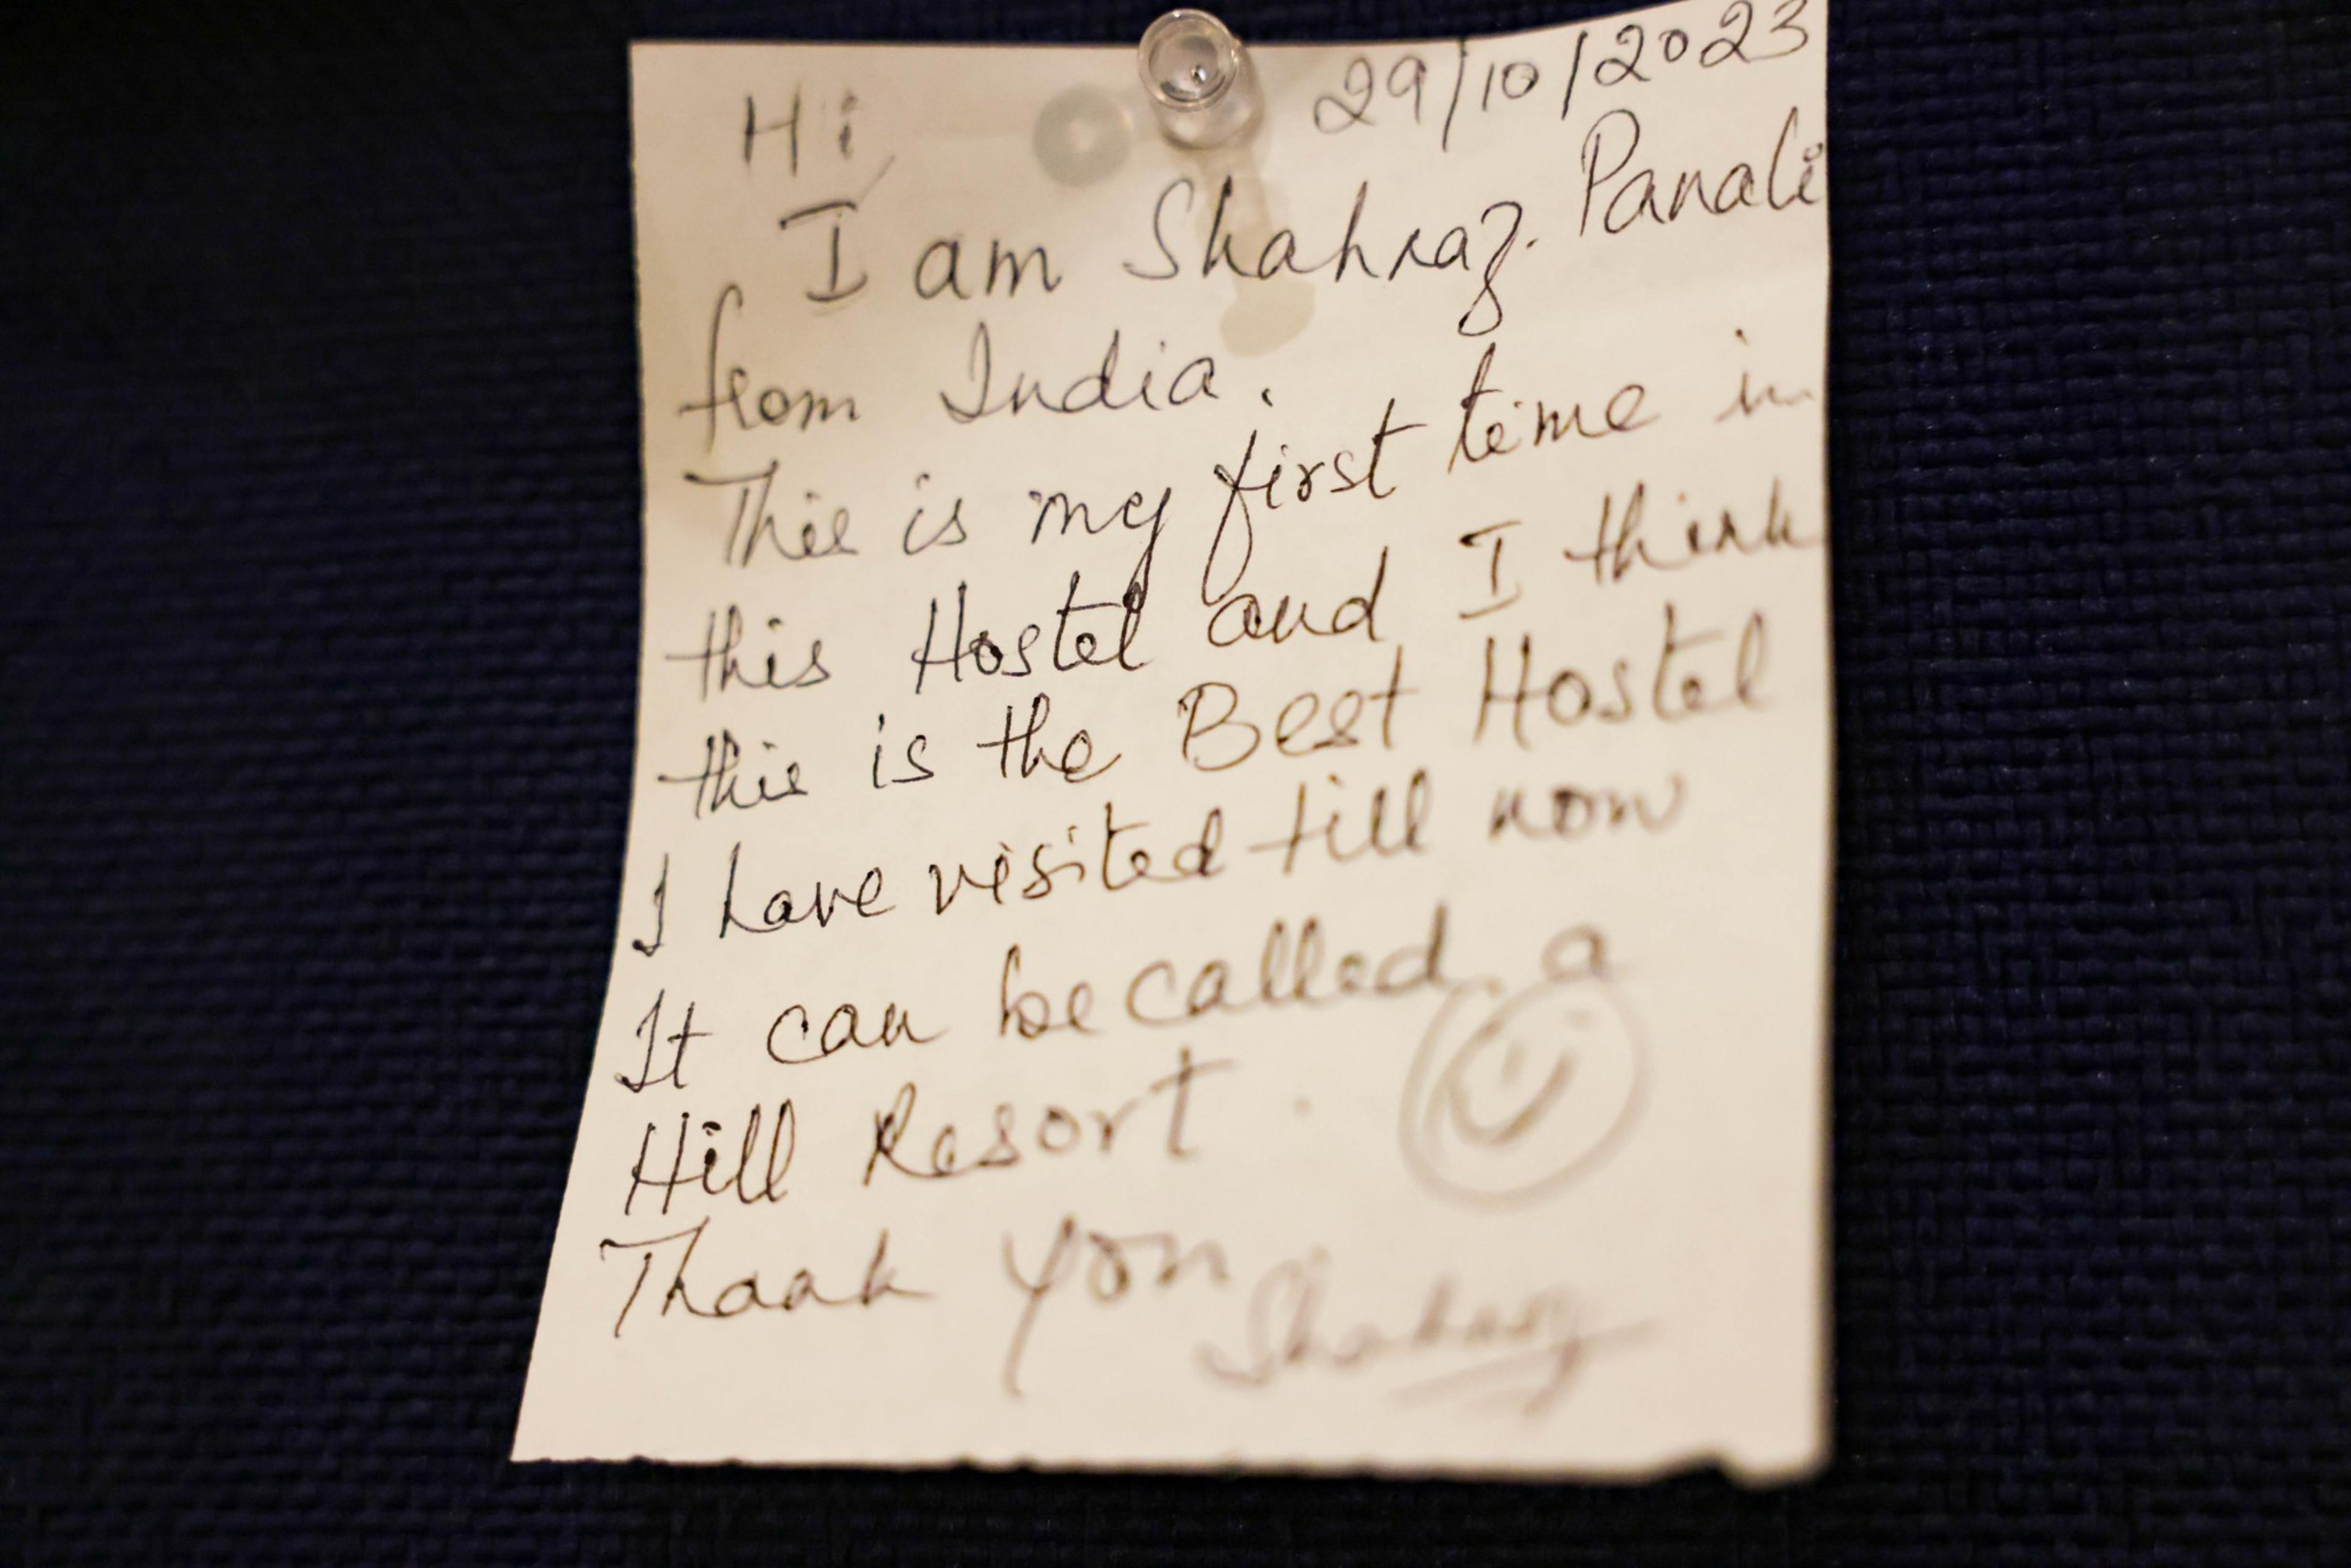 29/10/2023
Hi,
I am Shahraz. Panali
from India.
This is my first time in
this Hostel and I think
this is the Best Hostel
I have visited till now
It can be called a
Hill Resort.
Thank you
Shahraz